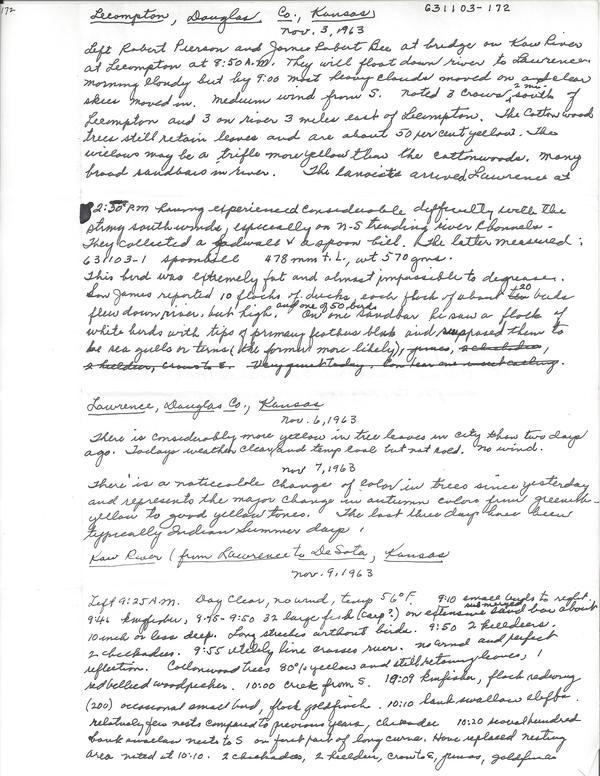 172
Lecompton, Douglas Co., Kansas
631103-172
Nov. 3, 1963
Left Robert Pierson and James Robert Bee at bridge on Kaw River
at Lecompton at 8:50 A.M. They will float down river to Lawrence.
Morning cloudy but by 9:00 most heavy clouds moved on and clear
skies moved in. Medium wind from S. Noted 3 crows 2 mi. south of
Lecompton and 3 on river 3 miles east of Lecompton. The Cottonwood
trees still retain leaves and are about 50 per cent yellow. The
willows may be a trifle more yellow than the cottonwoods. Many
broad sandbars in river. The canoeists arrived Lawrence at
2:30 PM having experienced considerable difficulty with the
strong south winds, especially on N-S trending river channels.
They collected a gadwall & a spoon bill. The latter measured:
631103-1 spoonbill 478 mm T.L., wt 570 gms.
This bird was extremely fat and almost impossible to degrease.
Son James reported 10 flocks of ducks, each flock of about 20 birds
and one of 50 birds
flew down river, but high. On one sandbar he saw a flock of
white birds with tips of primary feathers black and supposed them to
be sea gulls or terns (the former more likely), juncos, 2 chickadees,
2 killdeer, crow to E. Very quiet today, can hear one insect calling.
Lawrence, Douglas Co., Kansas
Nov. 6, 1963
There is considerably more yellow in tree leaves in city than two days
ago. Todays weather clear and temp cool but not cold. No wind.
Nov 7, 1963
There is a noticeable change of color in trees since yesterday
and represents the major change in autumn colors from greenish-
yellow to good yellow tones. The last three days have been
typically Indian Summer days.
Kaw River (from Lawrence to DeSoto, Kansas
Nov. 9, 1963
Left 9:25 A.M. Day clear, no wind, temp 56°F. 9:10 small birds to right.
9:46 kingfisher, 9:45-9:50 32 large fish (carp?) on extensive submerged sand bar about
10 inch or less deep. Long stretches without birds. 9:50 2 killdeers.
2 chickadees. 9:55 utility line crosses river. No wind and perfect
reflection. Cottonwood trees 80% yellow and still retaining leaves, 1
red bellied woodpecker. 10:00 creek from S. 10:09 kingfisher, flock redwing
(200) occasional small bird, flock goldfinch. 10:10 bank swallow
relatively few nests compared to previous years, chickadee 10:20 several hundred
bank swallow nests to S on first part of long curve. Have replaced nesting
area noted at 10:10. 2 chickadees, 2 killdeer, crow to E, juncos, goldfinch